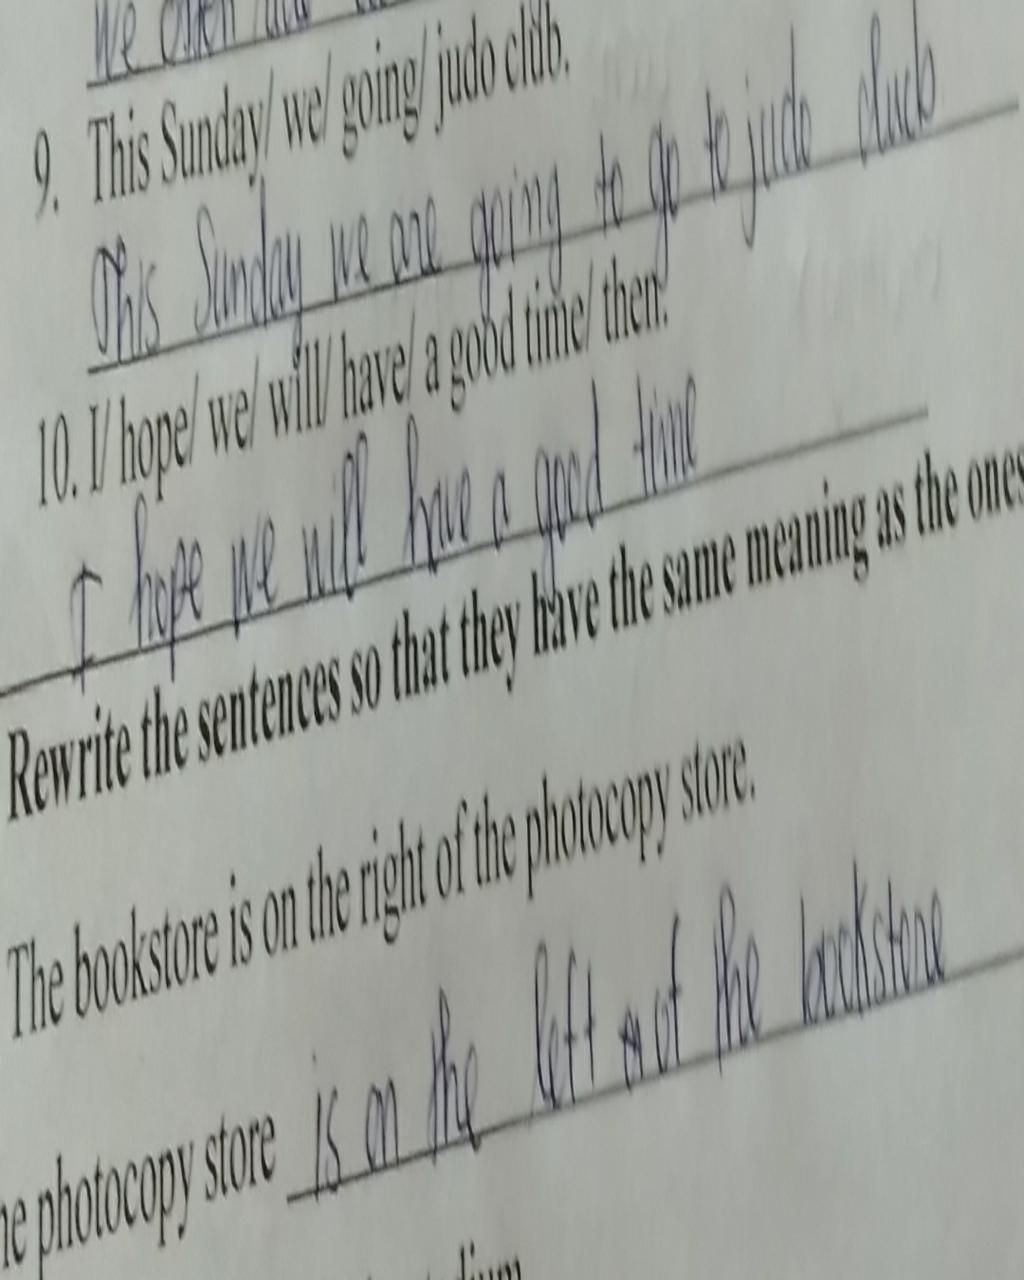 We often
9. This Sunday/ we/ going/ judo club.
This Sunday we are going to go to judo club
10. I/ hope/ we/ will/ have/ a good time/ then.
I hope we will have a good time
Rewrite the sentences so that they have the same meaning as the ones
The bookstore is on the right of the photocopy store.
he photocopy store is on the left of the bookstore